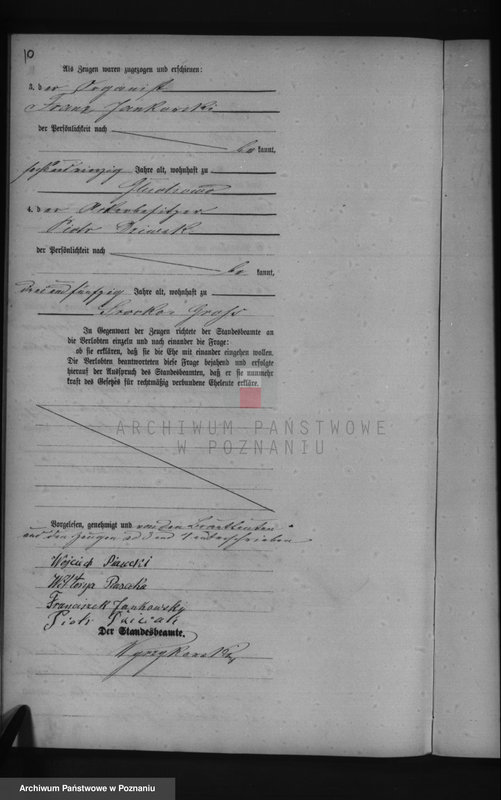 10
Als Zeugen waren zugezogen und erschienen:
3. der Organist
Franz Jankowski
der Persönlichkeit nach
be kannt,
sechsundvierzig Jahre alt, wohnhaft zu
4. der Ackerbesitzer
Piotr
der Persönlichkeit nach
be kannt,
dreiundfünfzig Jahre alt, wohnhaft zu
Srocko Gross
In Gegenwart der Zeugen richtete der Standesbeamte an
die Verlobten einzeln und nach einander die Frage:
ob sie erklären, daß sie die Ehe mit einander eingehen wollen.
Die Verlobten beantworteten diese Frage bejahend und erfolgte
hierauf der Ausspruch des Standesbeamten, daß er sie nunmehr
kraft des Gesetzes für rechtmäßig verbundene Eheleute erkläre.
ARCHIWUM PAŃSTWOWE
W POZNANIU
Vorgelesen, genehmigt und von den Brautleuten
und den Zeugen unterschrieben
Wojciech
Wiktorya
Franciszek Jankowsky
Piotr
Der Standesbeamte.
Archiwum Państwowe w Poznaniu